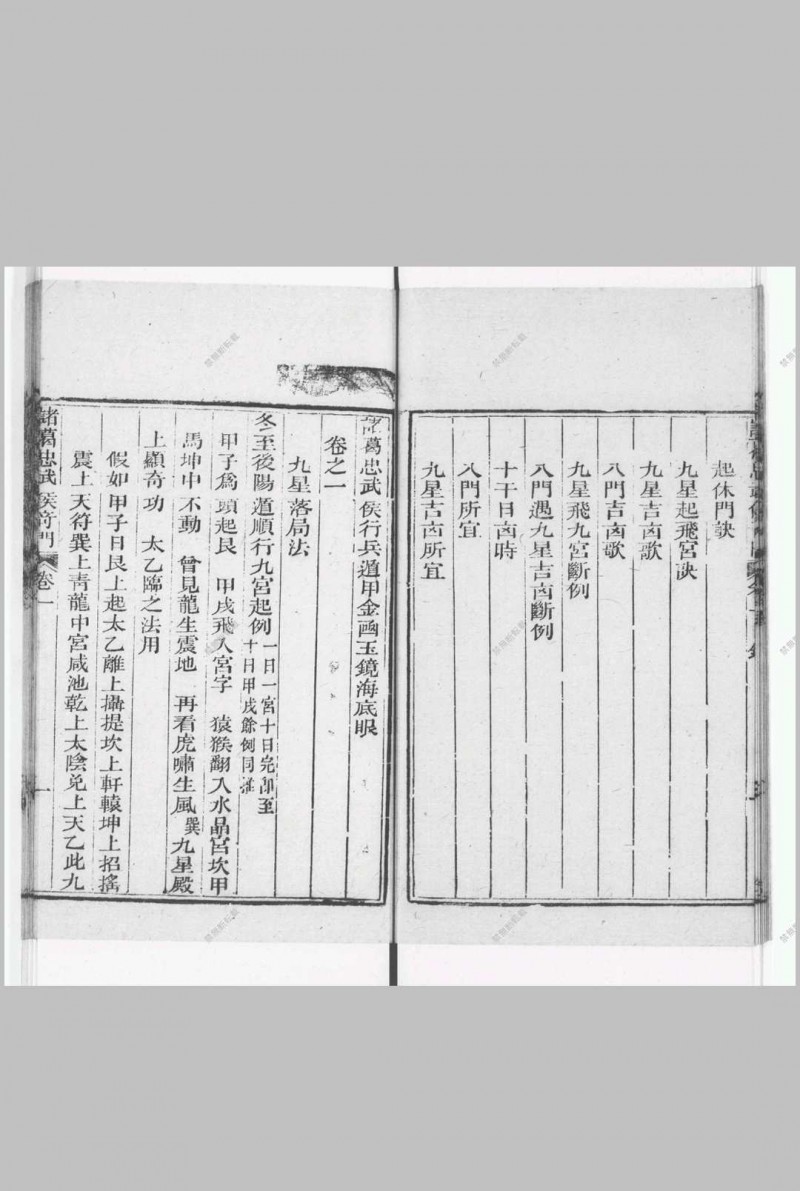 起休門訣
九星起飛宮訣
九星吉凶歌
八門吉凶歌
九星飛九宮斷例
八門遇九星吉凶斷例
十干日凶時
八門所宜
九星吉凶所宜
諸葛忠武侯行兵遁甲金函玉鏡海底眼
卷之一
九星落局法
冬至後陽遁順行九宮起例 一日一宮十日完
十日甲戌餘例同
甲子爲頭起艮 甲戌飛入宮字 猿猴翻入水晶宮坎甲
馬坤中不動 曾見龍生震地 再看虎嘯生風巽九星殿
上顯奇功 太乙臨之法用
假如甲子日艮上起太乙離上攝提坎上軒轅坤上招搖
震上天符巽上青龍中宮咸池乾上太陰兌上天乙此九
諸葛忠武侯符門 卷一 一